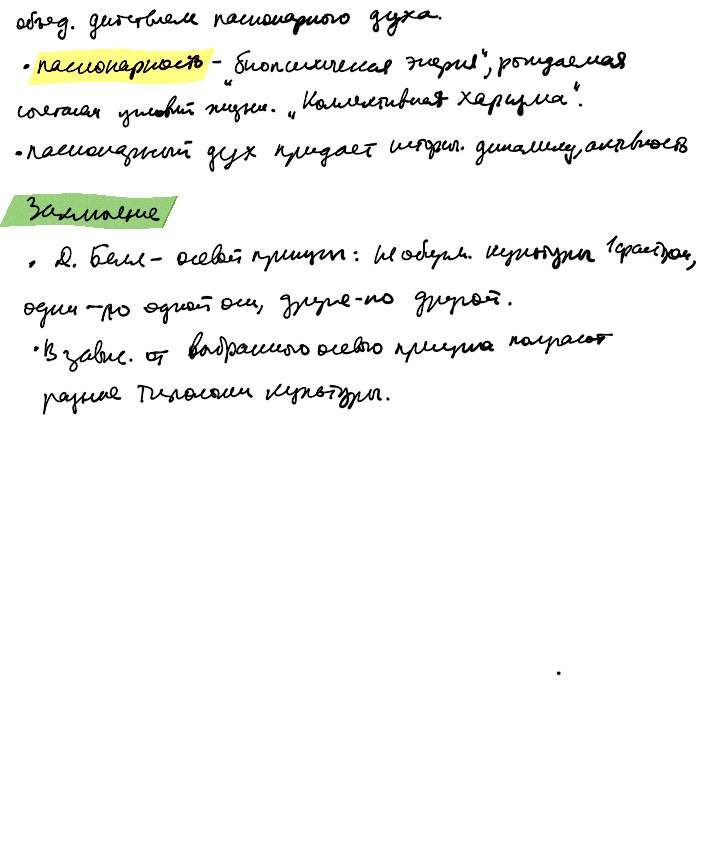 объед. действием пассионарного духа.
• пассионарность – "биопсихическая энергия", рождаемая
сочетан условий жизни. "Коллективная харизма".
• пассионарный дух придает истори. динамику, активность
Заключение
• Д. Белл – осевой принцип: не объясн. культуры 1 фактором,
одни – по одной оси, другие – по другой.
• В завис. от выбранного осевого принципа получают
разные типологии культуры.